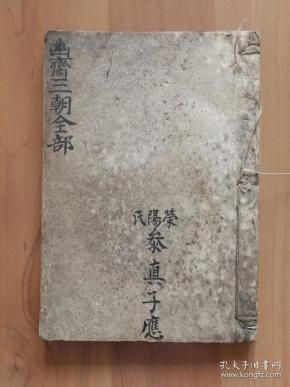 幽齋三朝全部
滎陽氏
叅真子應
孔夫子旧书网